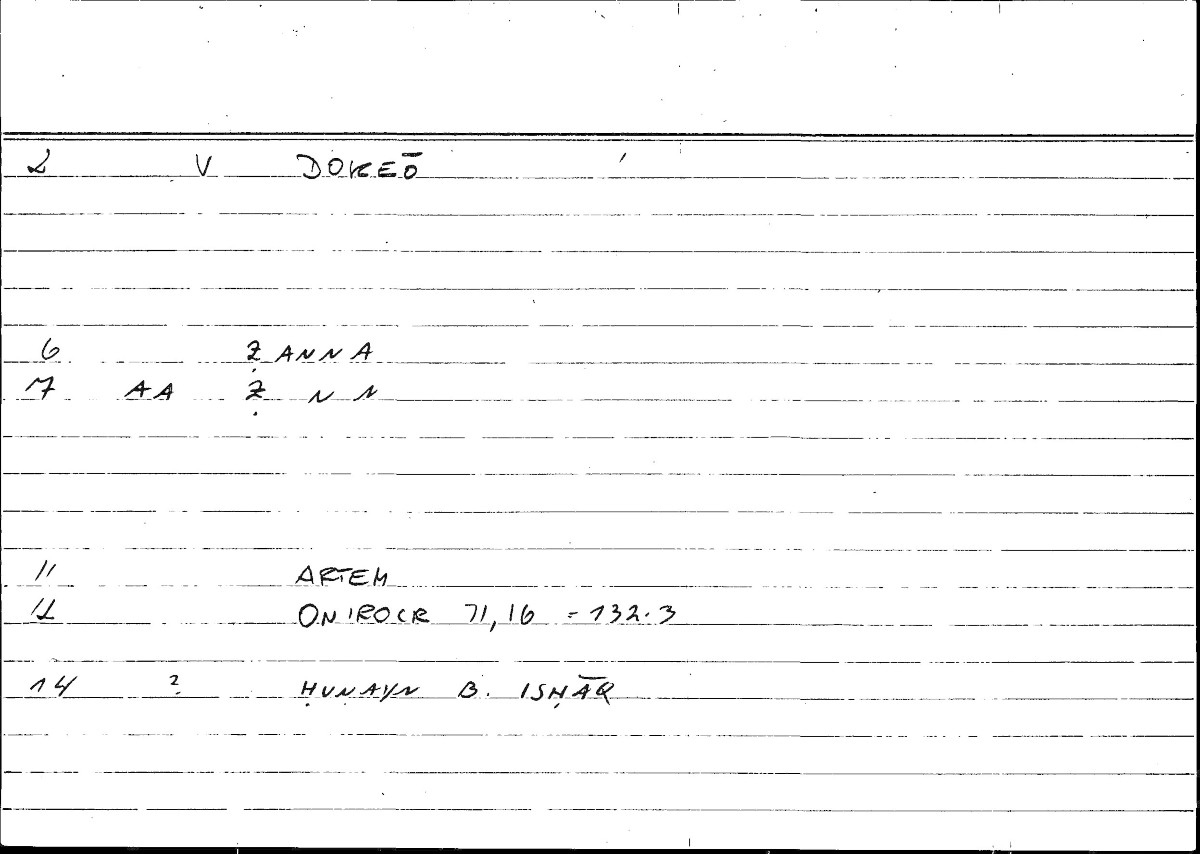 2 V DOKEŌ
6 Ẓ ANNA
7 AA Ẓ N N
11 ARTEM
12 ONIROCR 71,16 = 132.3
14 ? ḤUNAYN B. ISḤĀQ